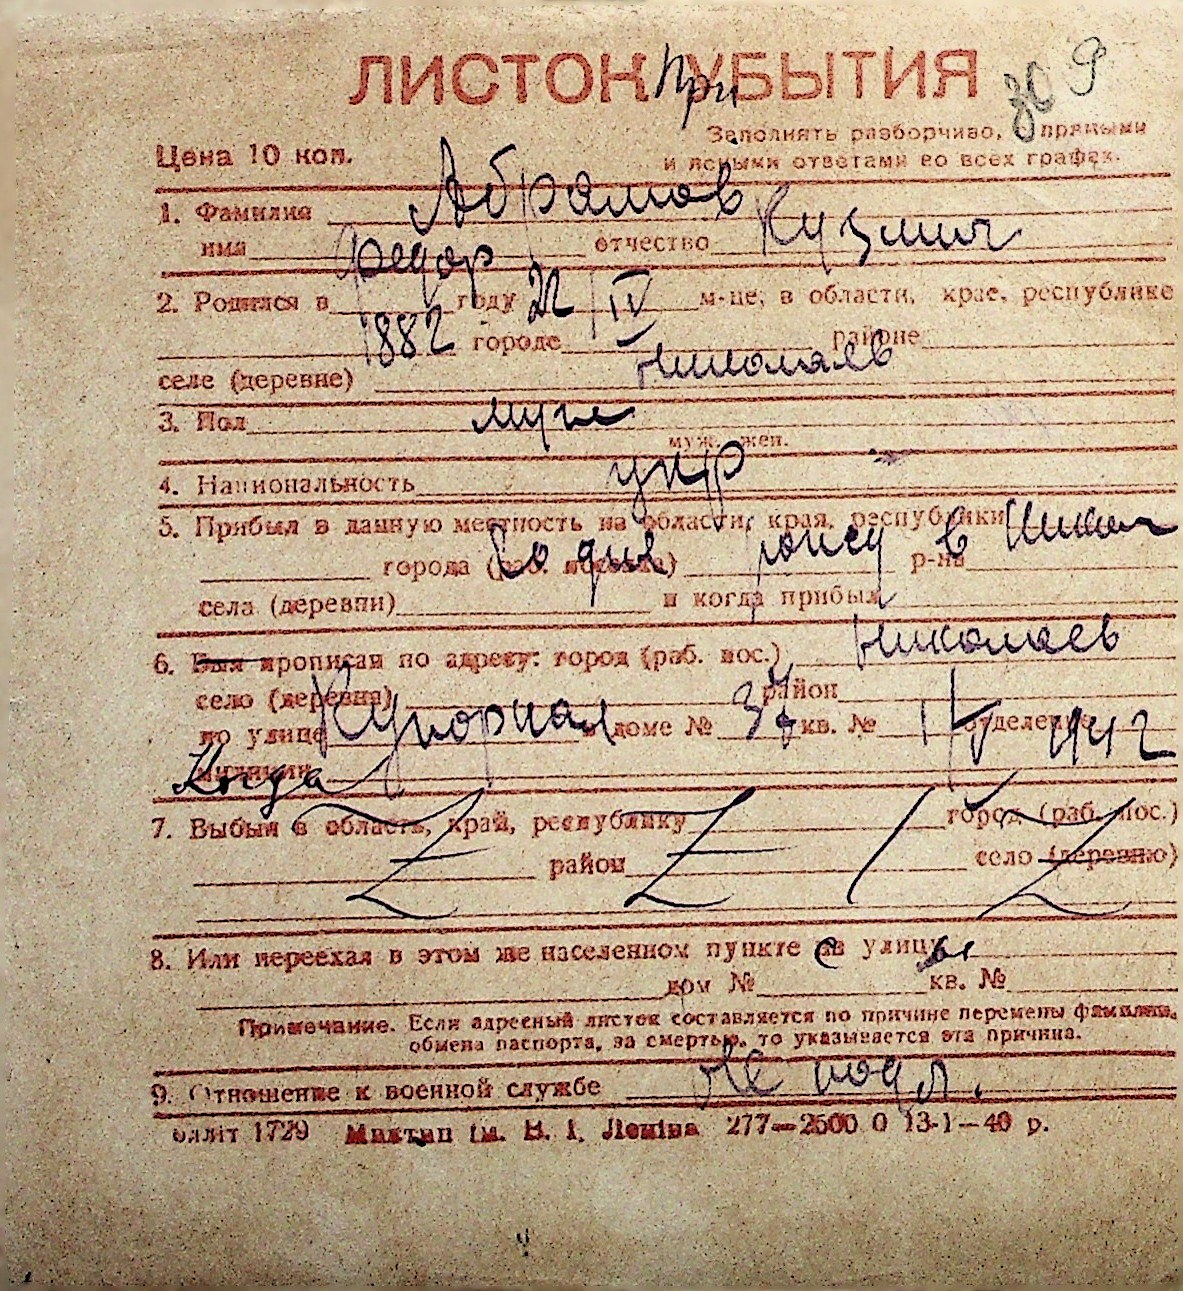 ЛИСТОК При УБЫТИЯ
Заполнять разборчиво, прямыми
Цена 10 коп.
и ясными ответами во всех графах.
1. Фамилия Абрамов
имя Федор отчество Кузмич
2. Родился в году 22/IV м-це, в области, крае, республике
1882 городе районе
селе (деревне) Николаев
3. Пол муж
муж. жен.
4. Национальность укр
5. Прибыл в данную местность из области, края, республики
Со дня рожд в Никол
города (раб. поселка) р-на
села (деревни) и когда прибыл
6. Был прописан по адресу: город (раб. пос.) Николаев
село (деревня) район
по улице Кузнорная в доме № 37 кв. № 1 отделение
милиции
Когда 1/V 1941 г
7. Выбыл в область, край, республику город (раб. пос.)
район село (деревню)
8. Или переехал в этом же населенном пункте с улицы
дом № кв. №
Примечание. Если адресный листок составляется по причине перемены фамилии,
обмена паспорта, за смертью, то указывается эта причина.
9. Отношение к военной службе не подл.
1729 Миктип ім. В. І. Леніна 277—2500 0 13-1—40 р.